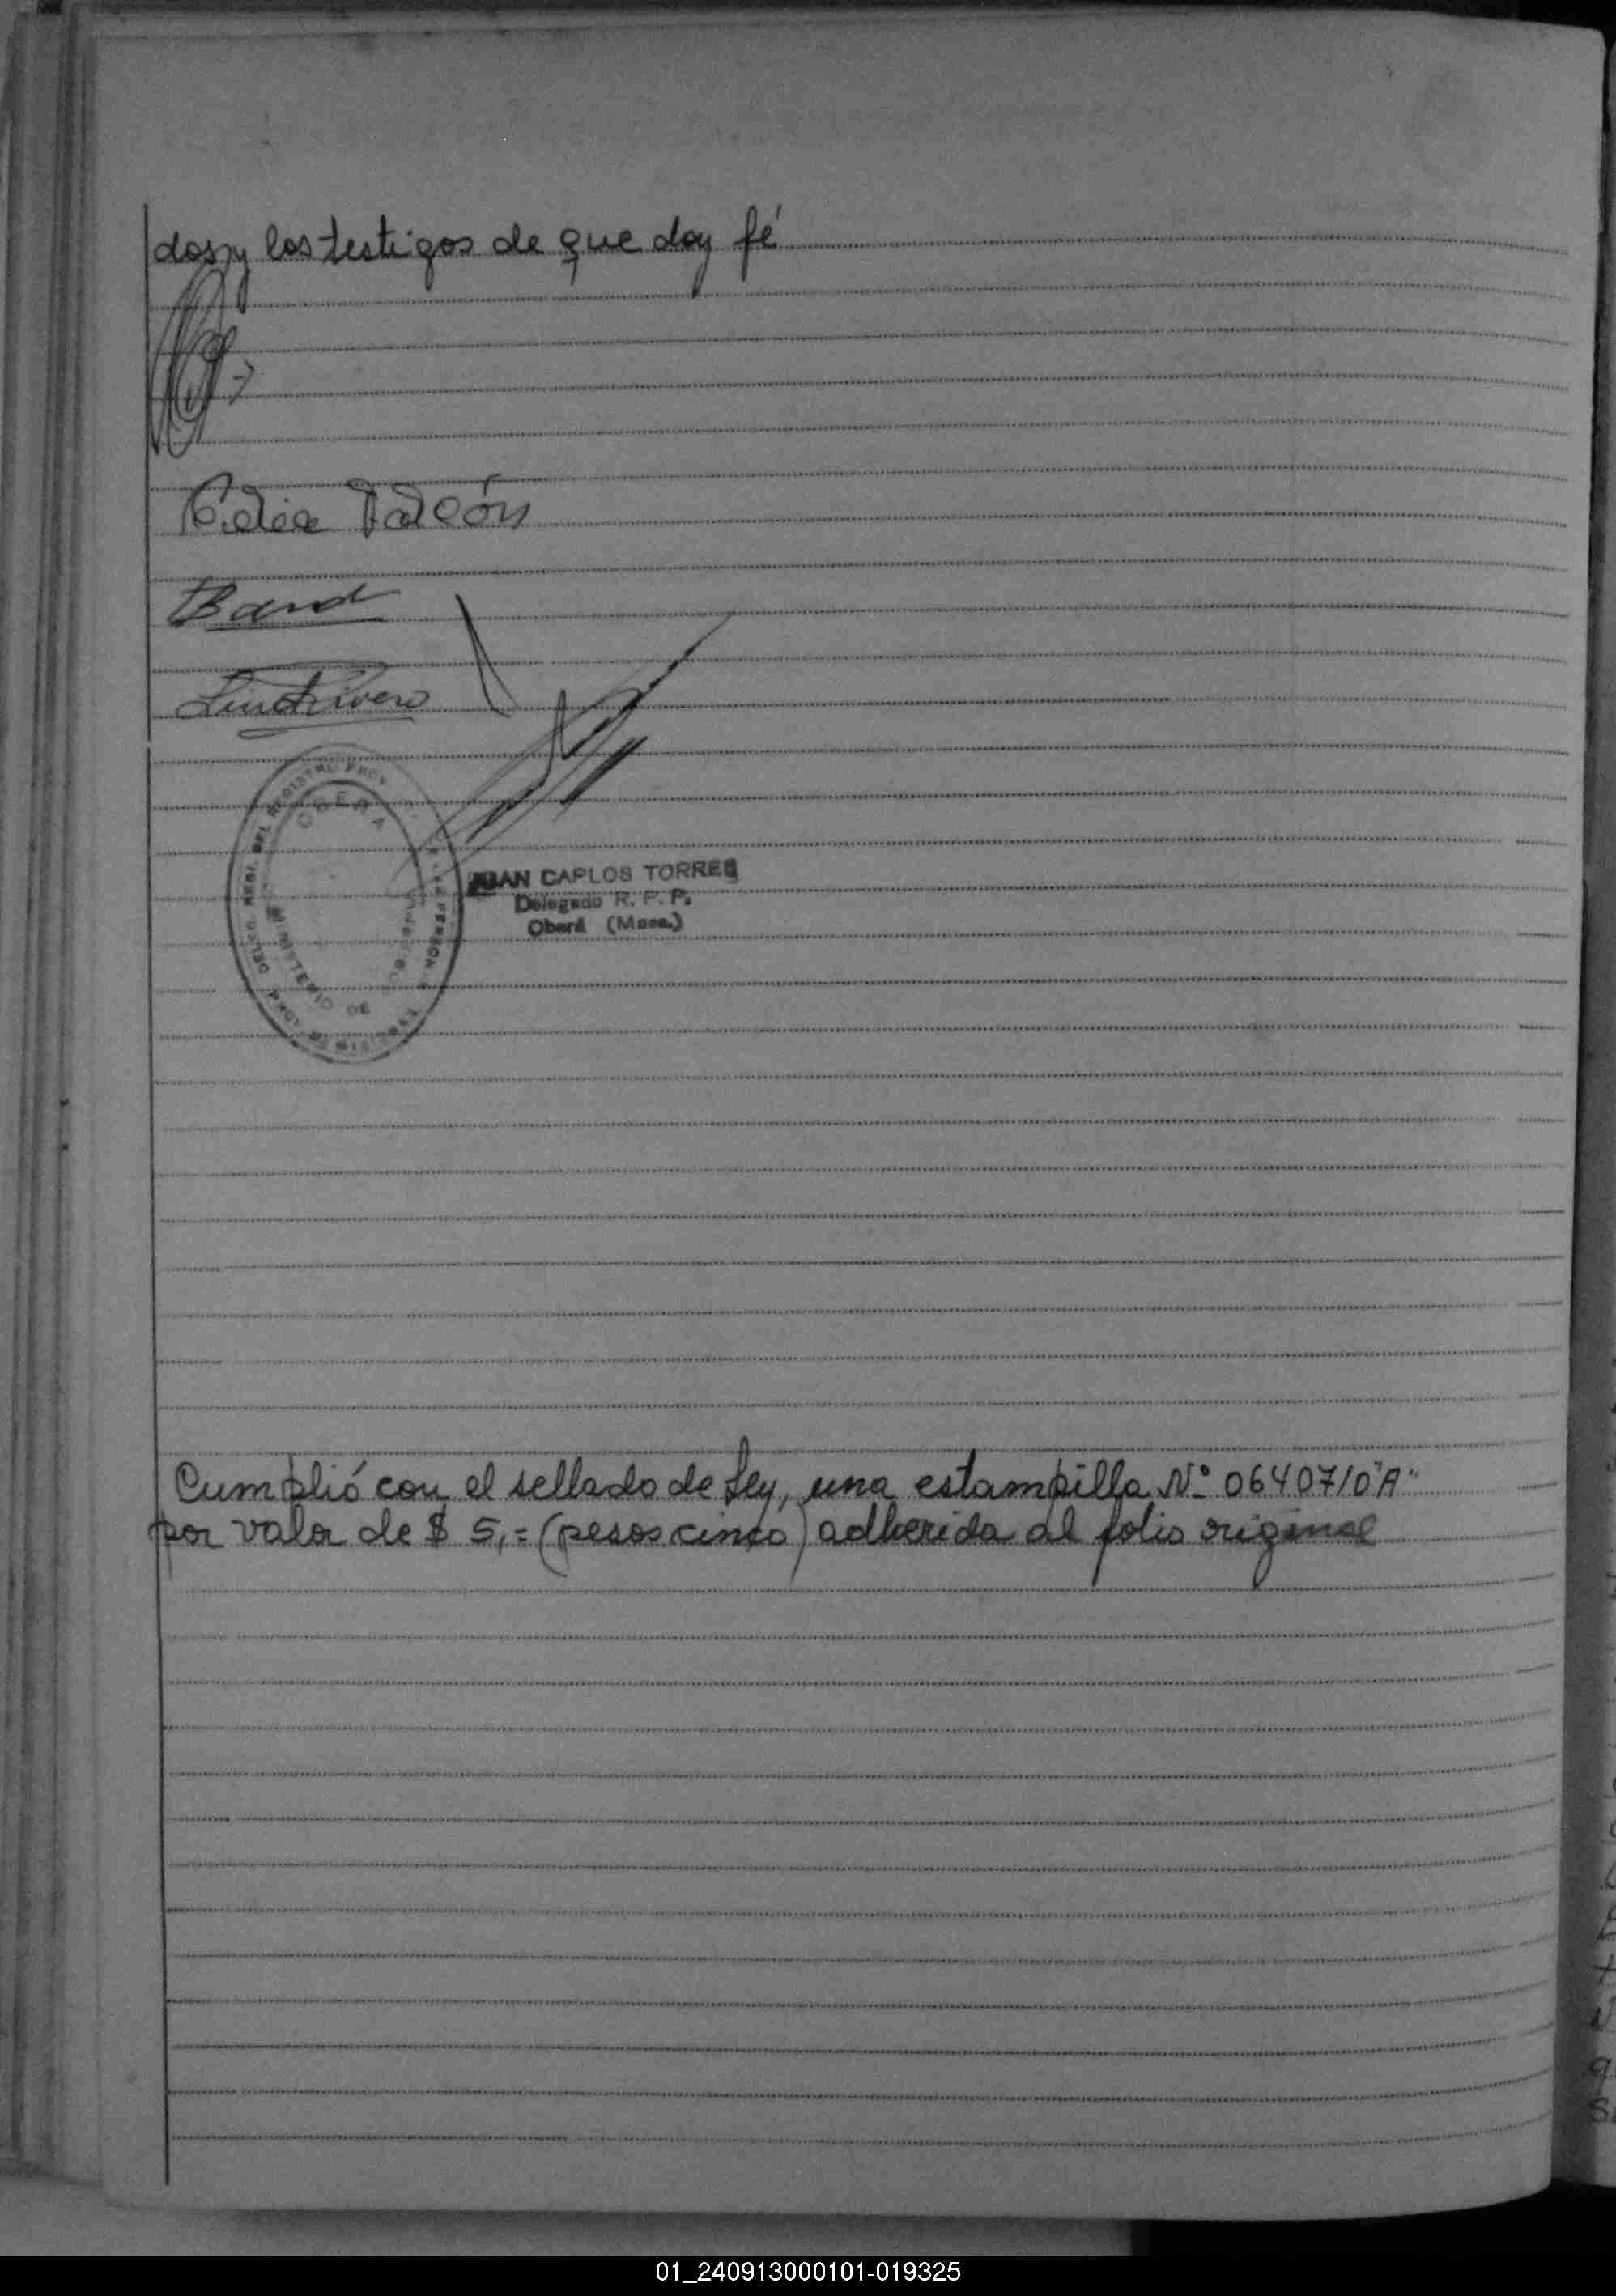 dos, y los testigos de que doy fé
Falcón
Band
Rivero
DEL REGISTRO PROV.
OBERA
MINISTERIO DE
JUAN CARLOS TORRES
Delegado R. P. P.
Oberá (Mnes.)
Cumplió con el sellado de Ley, una estampilla Nº 0640710"A"
por valor de $ 5,= (pesos cinco) adherida al folio original
01_240913000101-019325